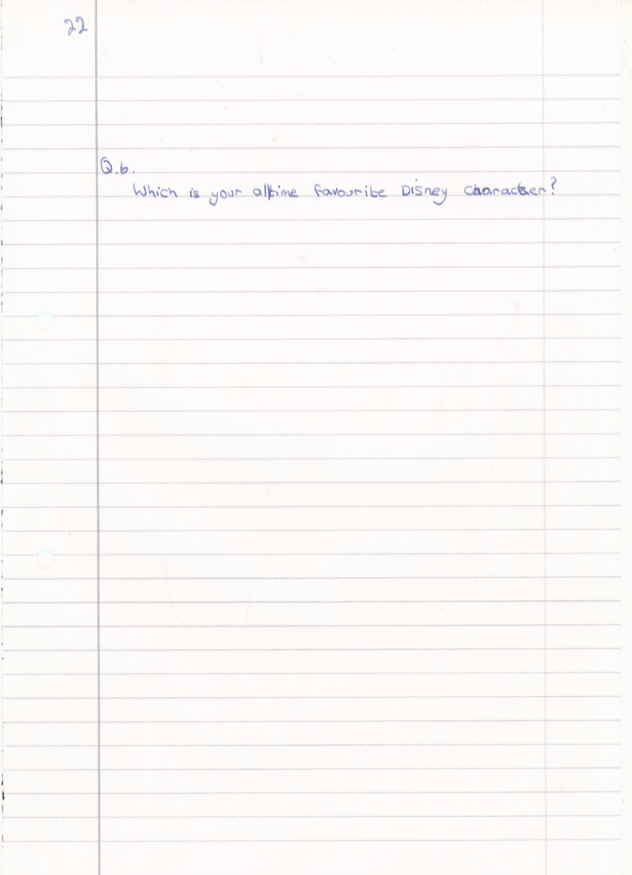 22
Q.6.
Which is your alltime favourite Disney character?